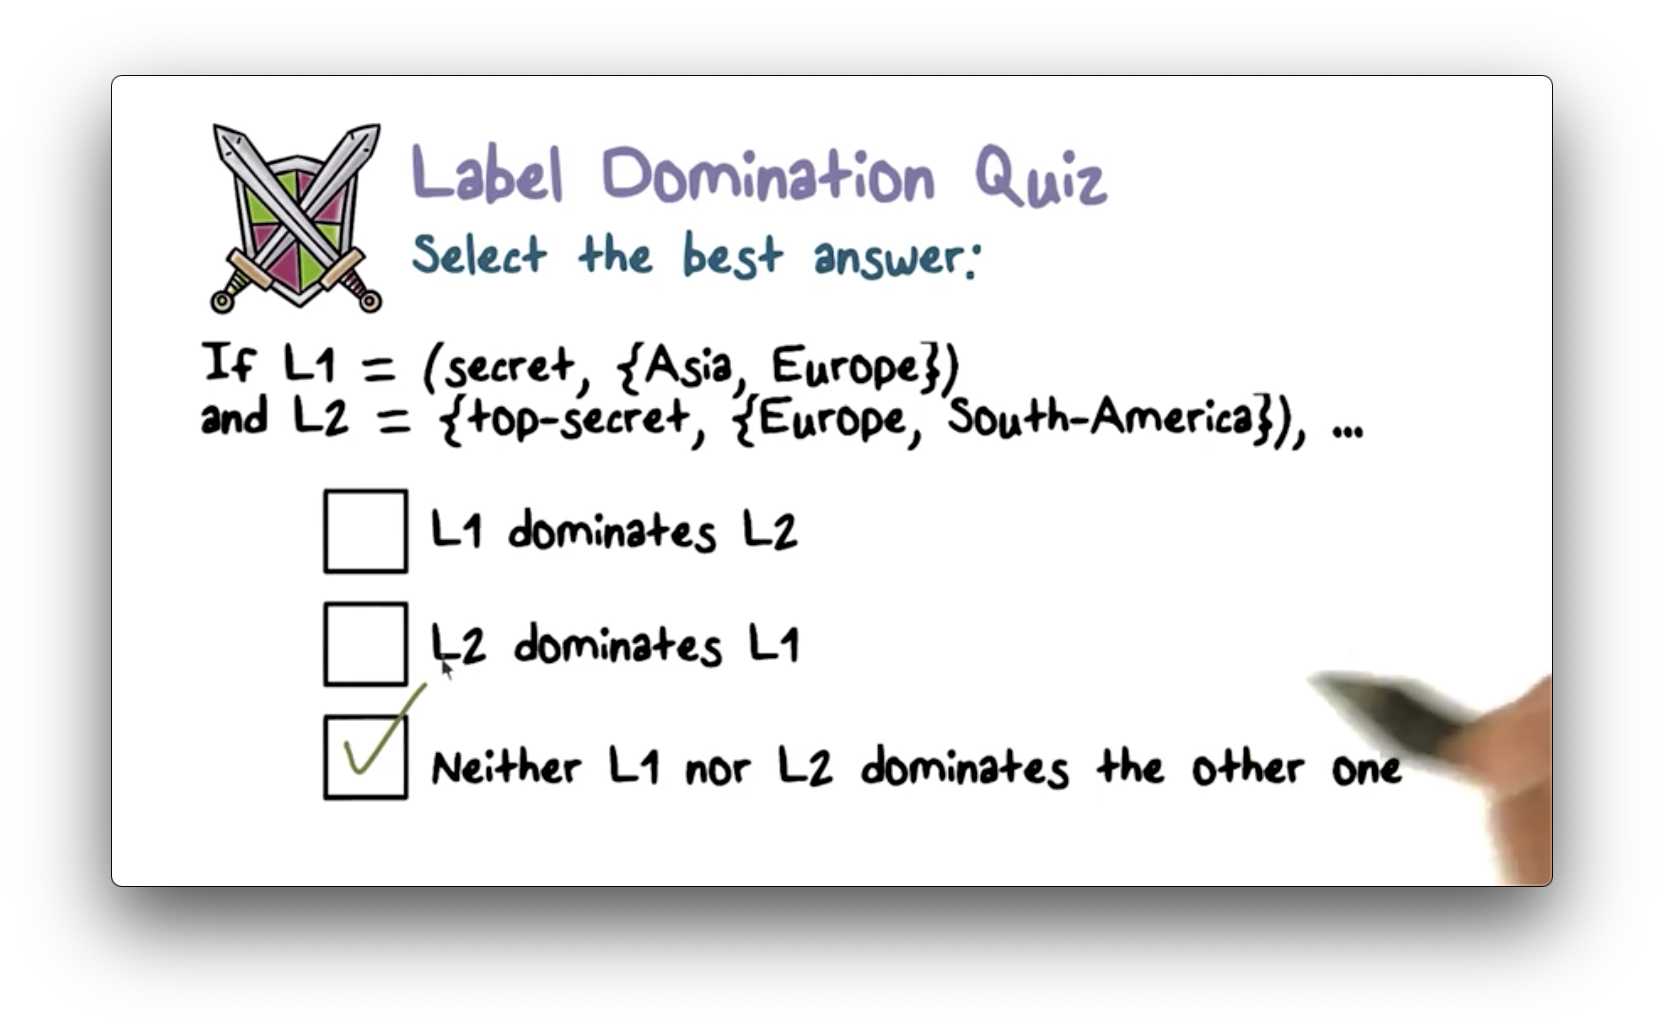 Label Domination Quiz
Select the best answer:
If L1 = (secret, {Asia, Europe})
and L2 = {top-secret, {Europe, South-America}), ...
L1 dominates L2
L2 dominates L1
Neither L1 nor L2 dominates the other one